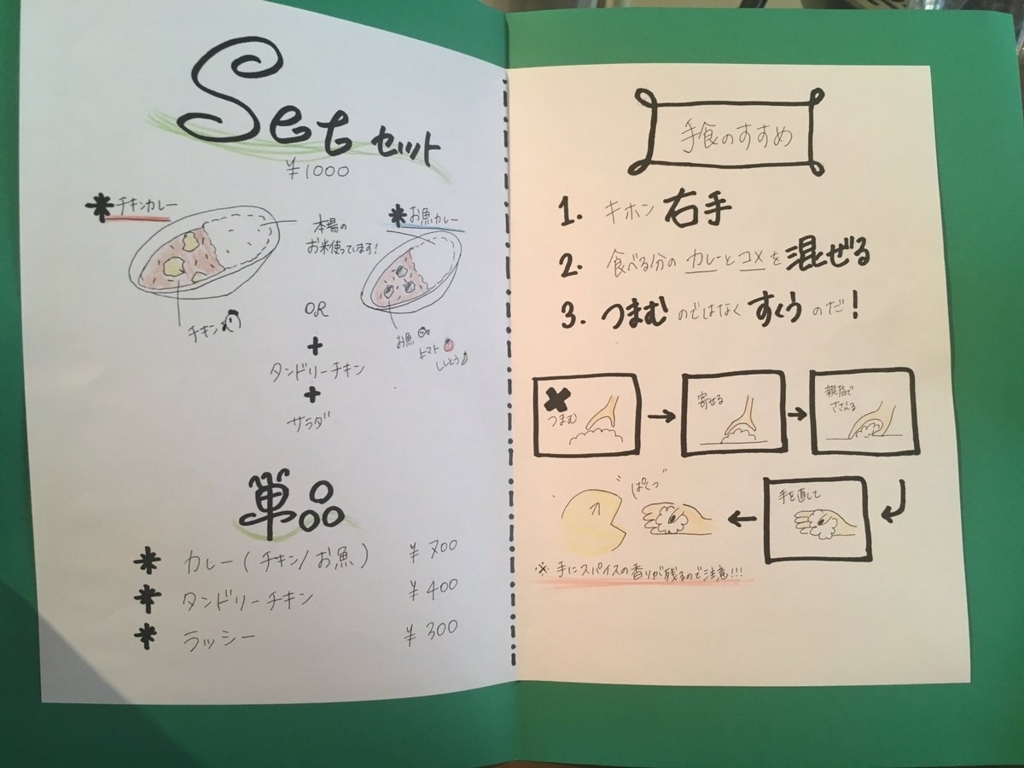 Set セット
¥1000
＊チキンカレー
本場の
お米使っています!
＊お魚カレー
チキン
OR
お魚
トマト
ししとう
+
タンドリーチキン
+
サラダ
単品
＊ カレー(チキン/お魚) ¥700
＊ タンドリーチキン ¥400
＊ ラッシー ¥300
手食のすすめ
1. キホン 右手
2. 食べる分の カレーとコメを混ぜる
3. つまむのではなく すくうのだ!
つまむ
寄せる
親指で
ささえる
手を直して
ぱくっ
※ 手にスパイスの香りが残るので注意!!!